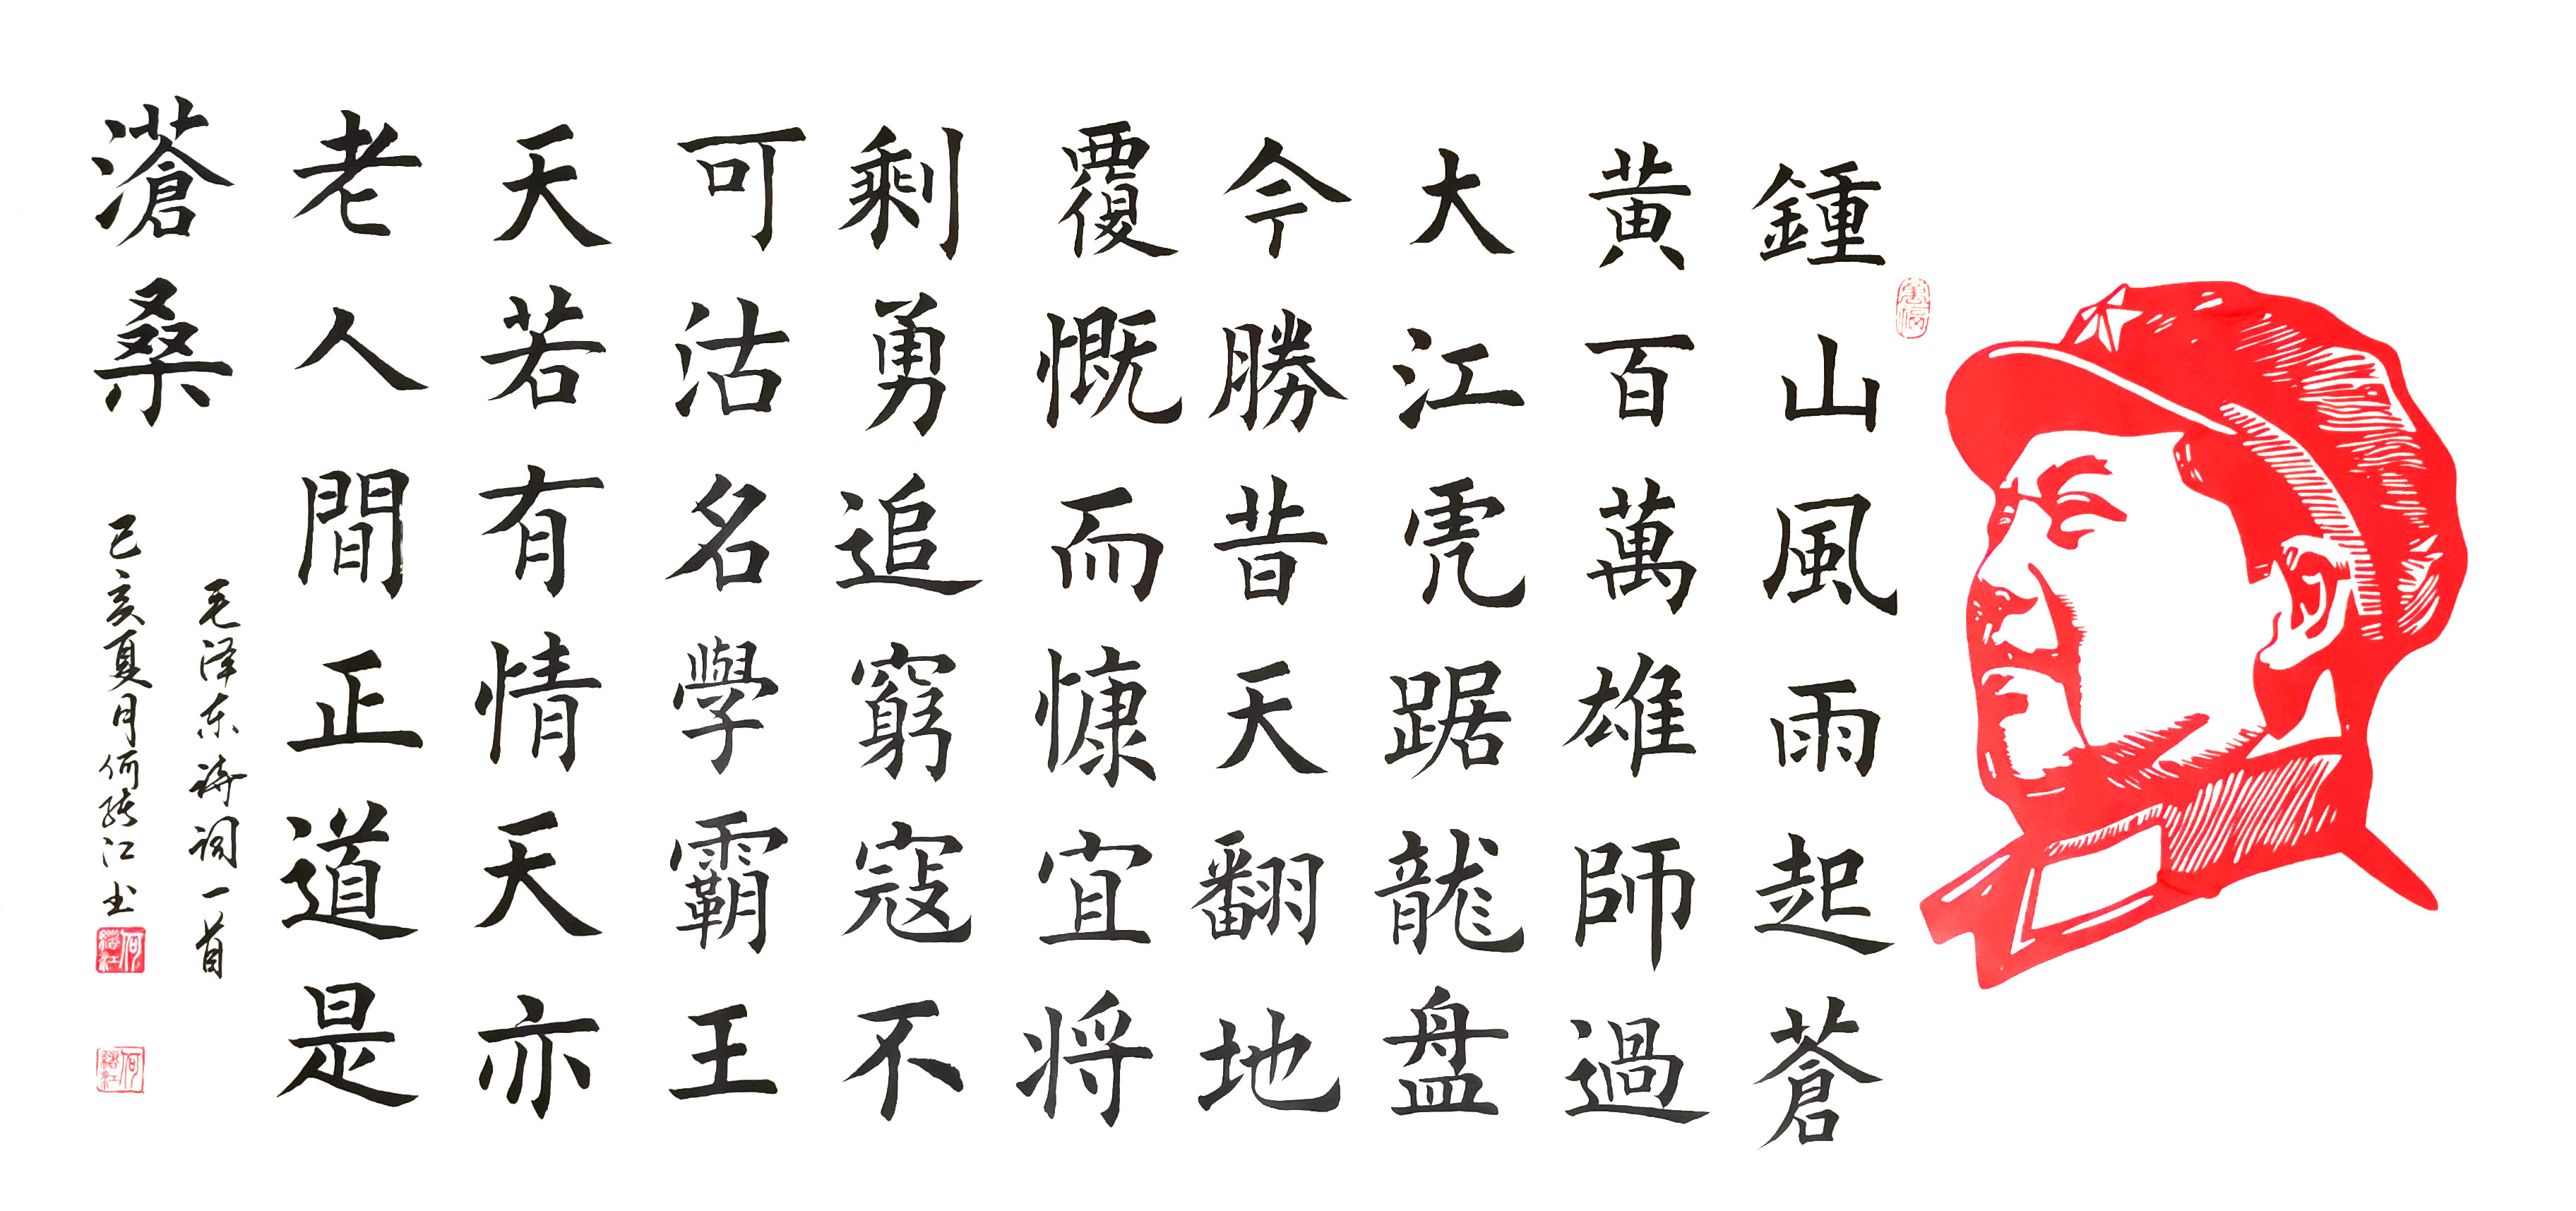 鍾山風雨起蒼
黄百萬雄師過
大江虎踞龍盘
今勝昔天翻地
覆慨而慷宜将
剩勇追窮寇不
可沽名學霸王
天若有情天亦
老人間正道是
滄桑
毛泽东诗词一首
己亥夏月何绪江书